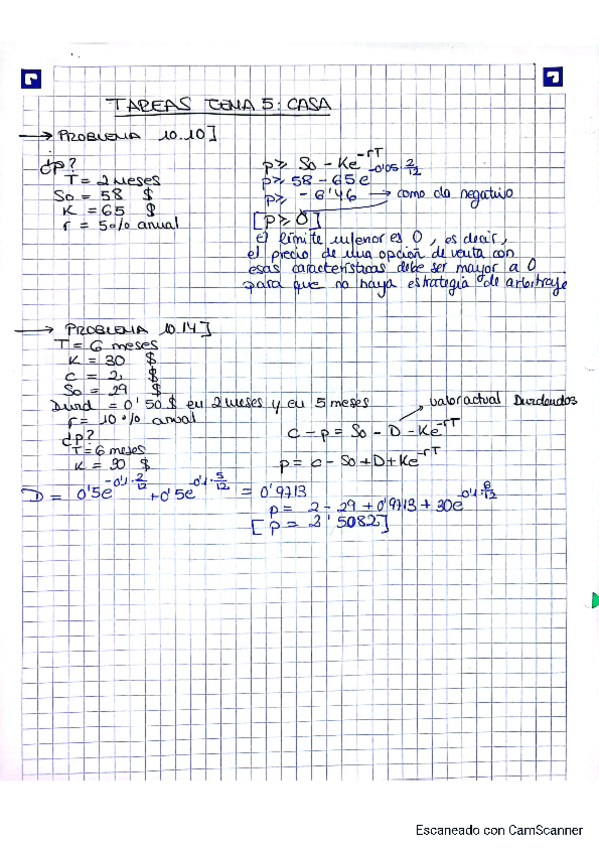 TAREAS TEMA 5: CASA
→ PROBLEMA 10.10]
¿p?
T = 2 meses
So = 58 $
K = 65 $
r = 5% anual
p ≥ So - Ke^-rT
p ≥ 58 - 65e^-0'05·2/12
p ≥ -6'46 → como da negativo
[p ≥ 0]
el límite inferior es 0, es decir,
el precio de una opción de venta con
esas características debe ser mayor a 0
para que no haya estrategia de arbitraje
→ PROBLEMA 10.14]
T = 6 meses
K = 30 $
c = 2 $
So = 29 $
Divid = 0'50 $ en 2 meses y en 5 meses
r = 10% anual
¿p?
T = 6 meses
K = 30 $
valor actual Dividendos
c - p = So - D - Ke^-rT
p = c - So + D + Ke^-rT
D = 0'5e^-0'1·2/12 + 0'5e^-0'1·5/12 = 0'9713
p = 2 - 29 + 0'9713 + 30e^-0'1·6/12
[p = 2'5082]
Escaneado con CamScanner